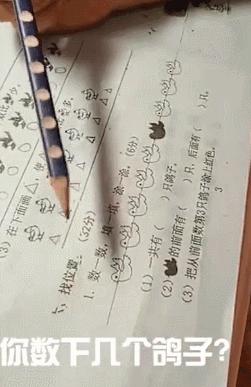 (3) 在下面画△,
六、找位置。(32分)
1. 数一数,填一填,涂一涂。(6分)
(1) 一共有( )只鸽子。
(2) 的前面有( )只,后面有( )只。
(3) 把从前面数第3只鸽子涂上红色。
3
你数下几个鸽子?